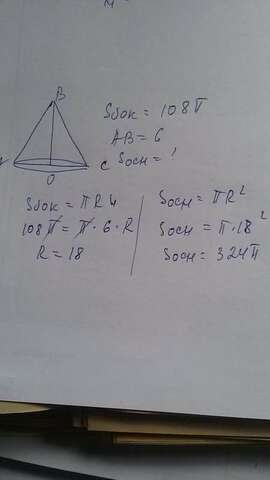 B
Sбок = 108π
AB = 6
Sосн = ?
C
O
Sбок = πRL
108π = π · 6 · R
R = 18
Sосн = πR²
Sосн = π·18²
Sосн = 324π